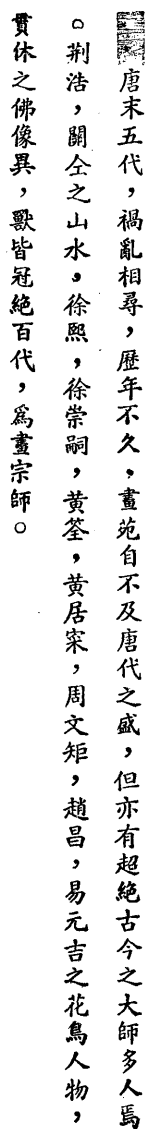 唐末五代，禍亂相尋，歷年不久，畫苑自不及唐代之盛，但亦有超絕古今之大師多人焉
。荆浩，關仝之山水，徐熙，徐崇嗣，黃筌，黃居寀，周文矩，趙昌，易元吉之花鳥人物，
貫休之佛像異，獸皆冠絕百代，爲畫宗師。